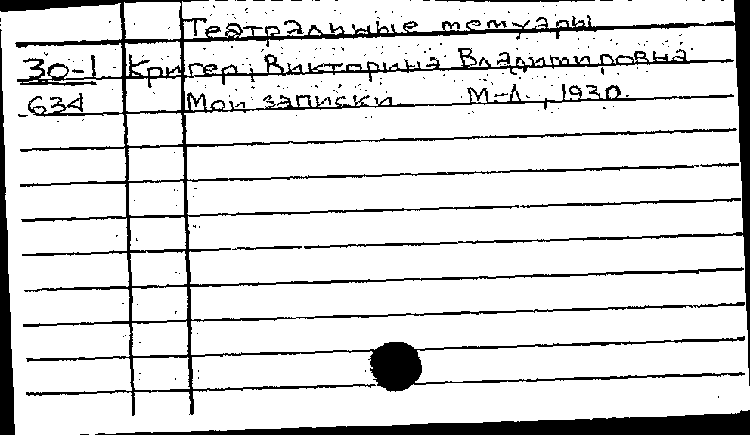 Театральные мемуары
30-1 Кригер, Викторина Владимировна
634 Мои записки М-Л, 1930.